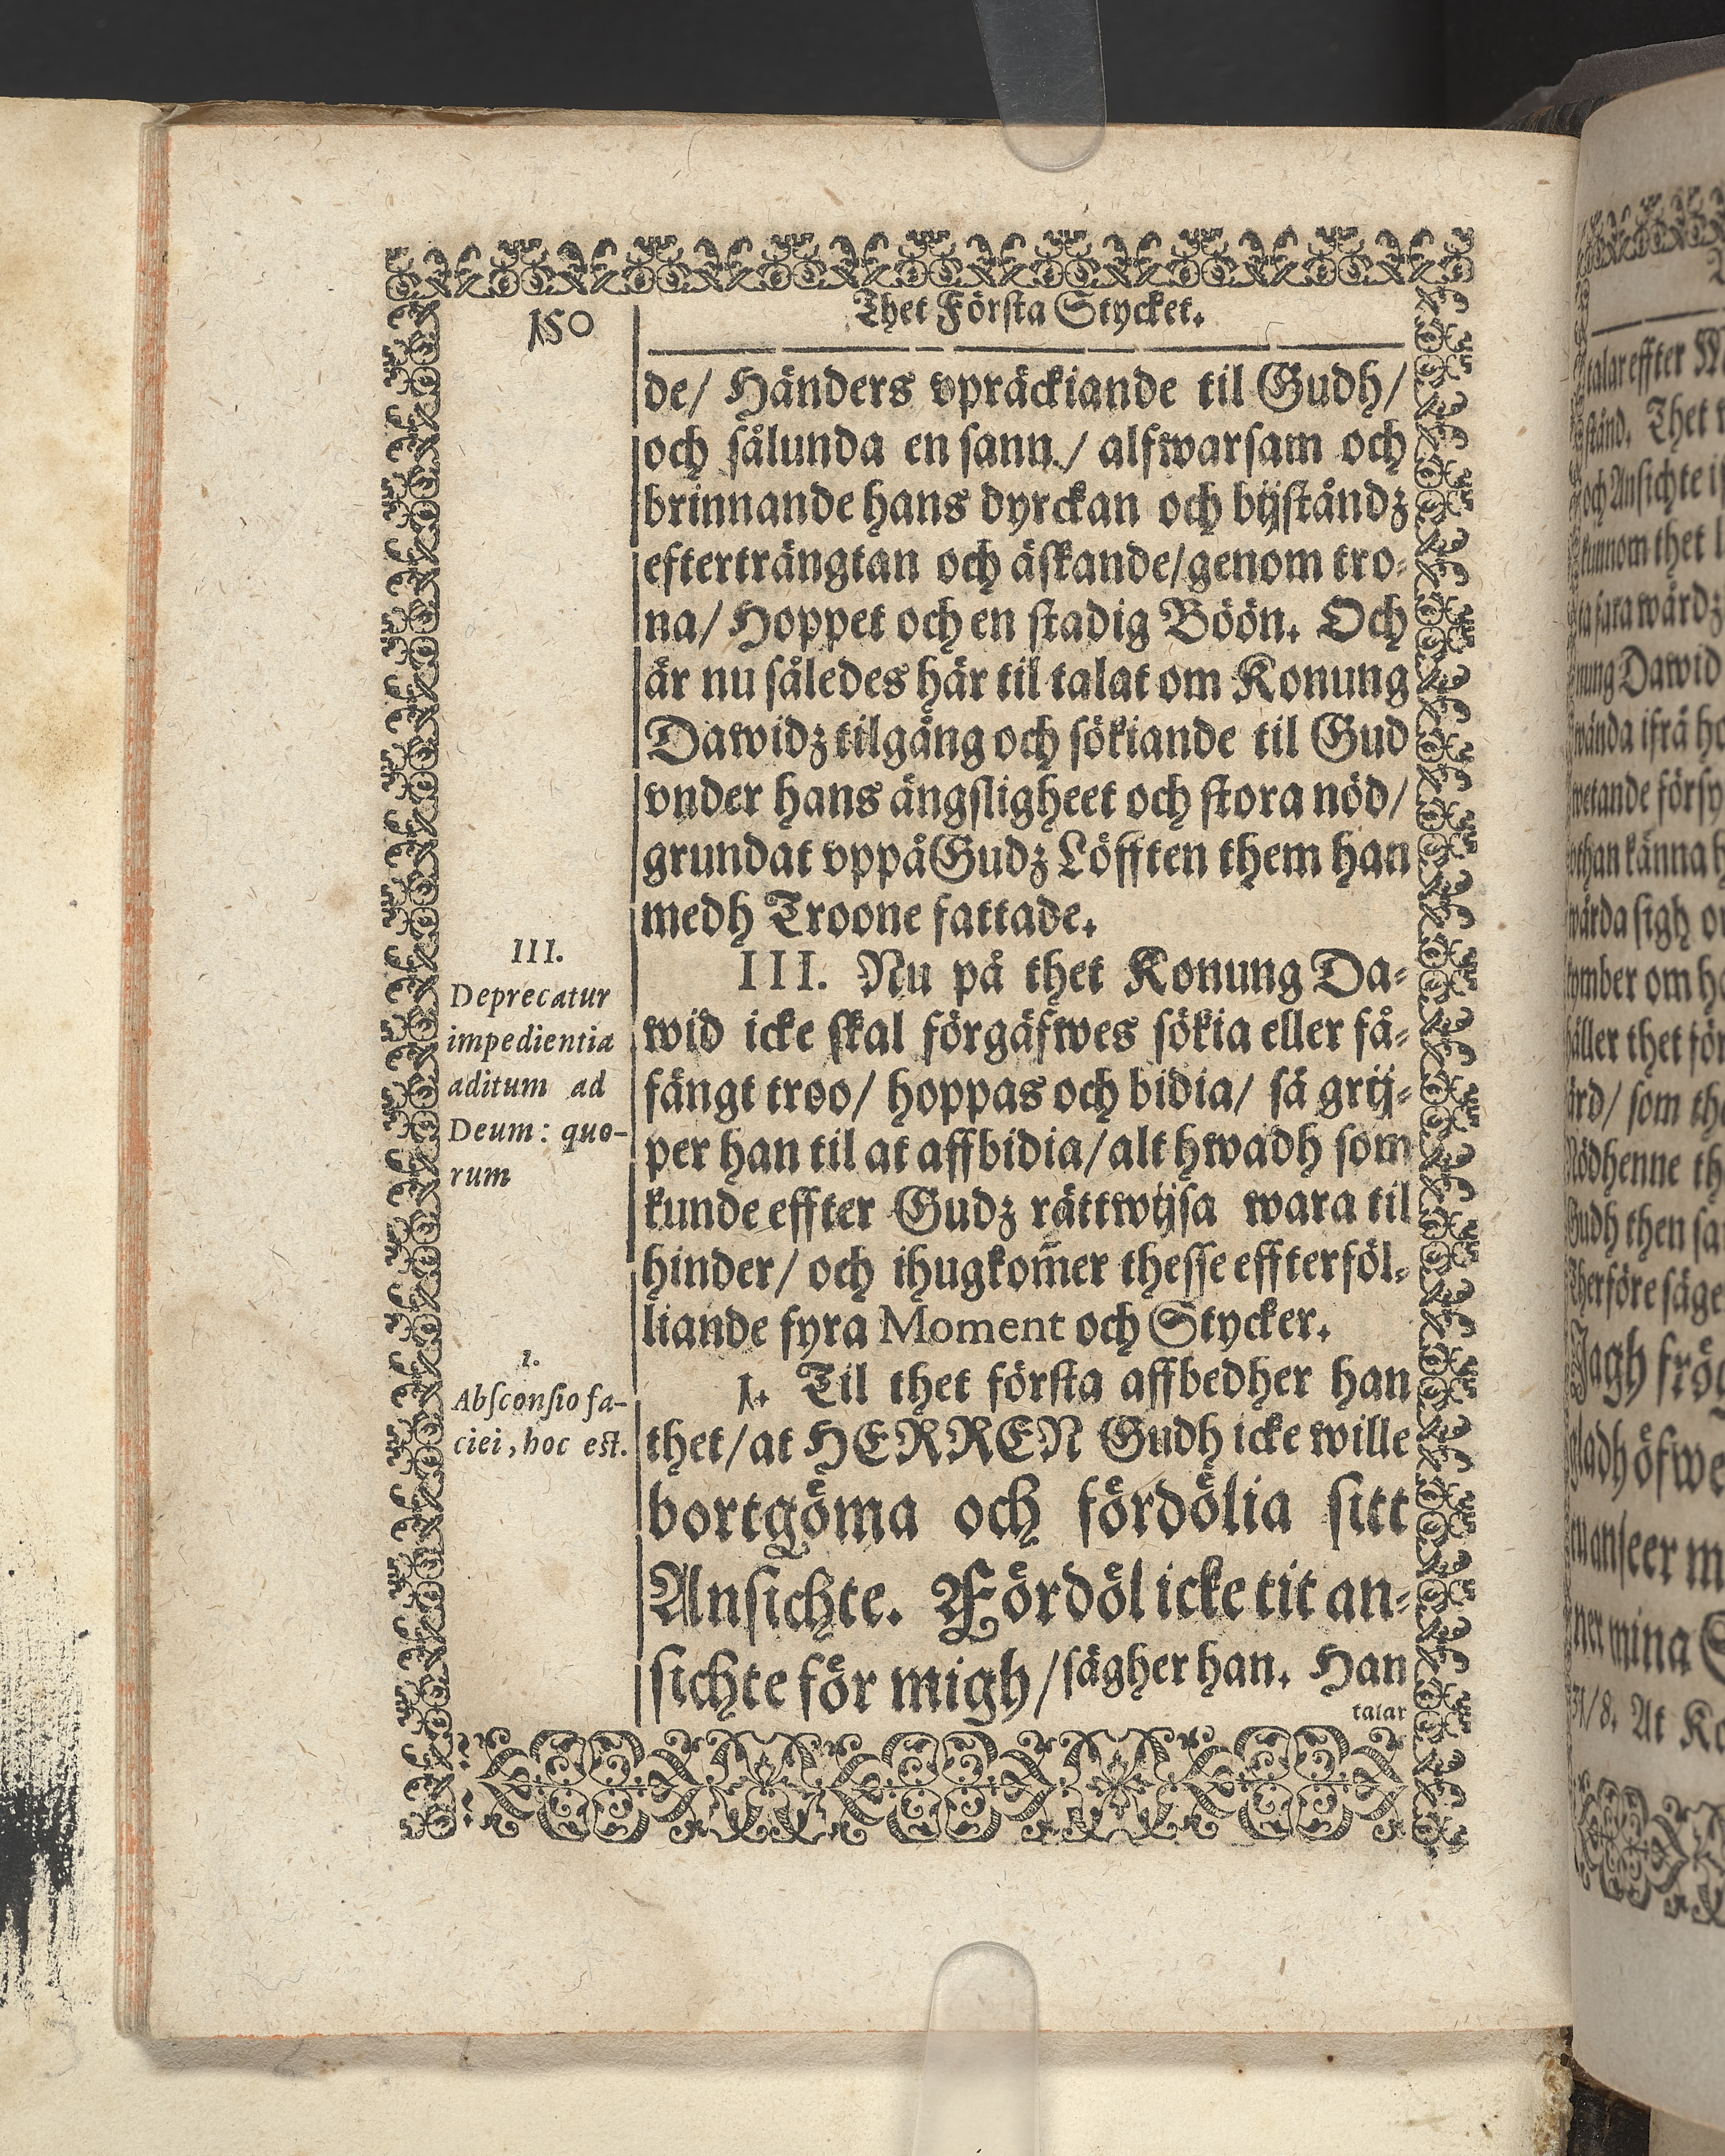 150
Thet Förſta Stycket.
de/ Händers vpräckiande til Gudh/
och ſålunda en ſann/ alfwarſam och
brinnande hans dyrckan och bijſtåndz
efterträngtan och äſkande/genom tro-
na/ Hoppet och en ſtadig Böön. Och
är nu ſåledes här til talat om Konung
Dawidz tilgång och ſökiande til Gud
vnder hans ängſligheet och ſtora nöd/
grundat vppå Gudz Löfften them han
medh Troone fattade.
III.
Deprecatur
impedientia
aditum ad
Deum: quo-
rum
III. Nu på thet Konung Da-
wid icke ſkal förgäfwes ſökia eller få-
fängt troo/ hoppas och bidia/ så grij-
per han til at affbidia/alt hwadh ſom
kunde effter Gudz rättwijſa wara til
hinder/ och ihugkom̃er theſſe effterföl-
liande fyra Moment och Stycker.
1.
Abſconſio fa-
ciei, hoc est.
1. Til thet förſta affbedher han
thet/at HERREN Gudh icke wille
bortgöma och fördölia ſitt
Anſichte. Fördöl icke tit an-
ſichte för migh/ſägher han. Han
talar
talar effter
ſtånd. Thet
och Anſichte
kunnom thet
Dawid
wända ifrå
wetande
than känna
ſigh
om
thet
ſom
Nödhenne
Gudh then
Therföre
Jagh
gladh
anſeer
mina
31/8. At